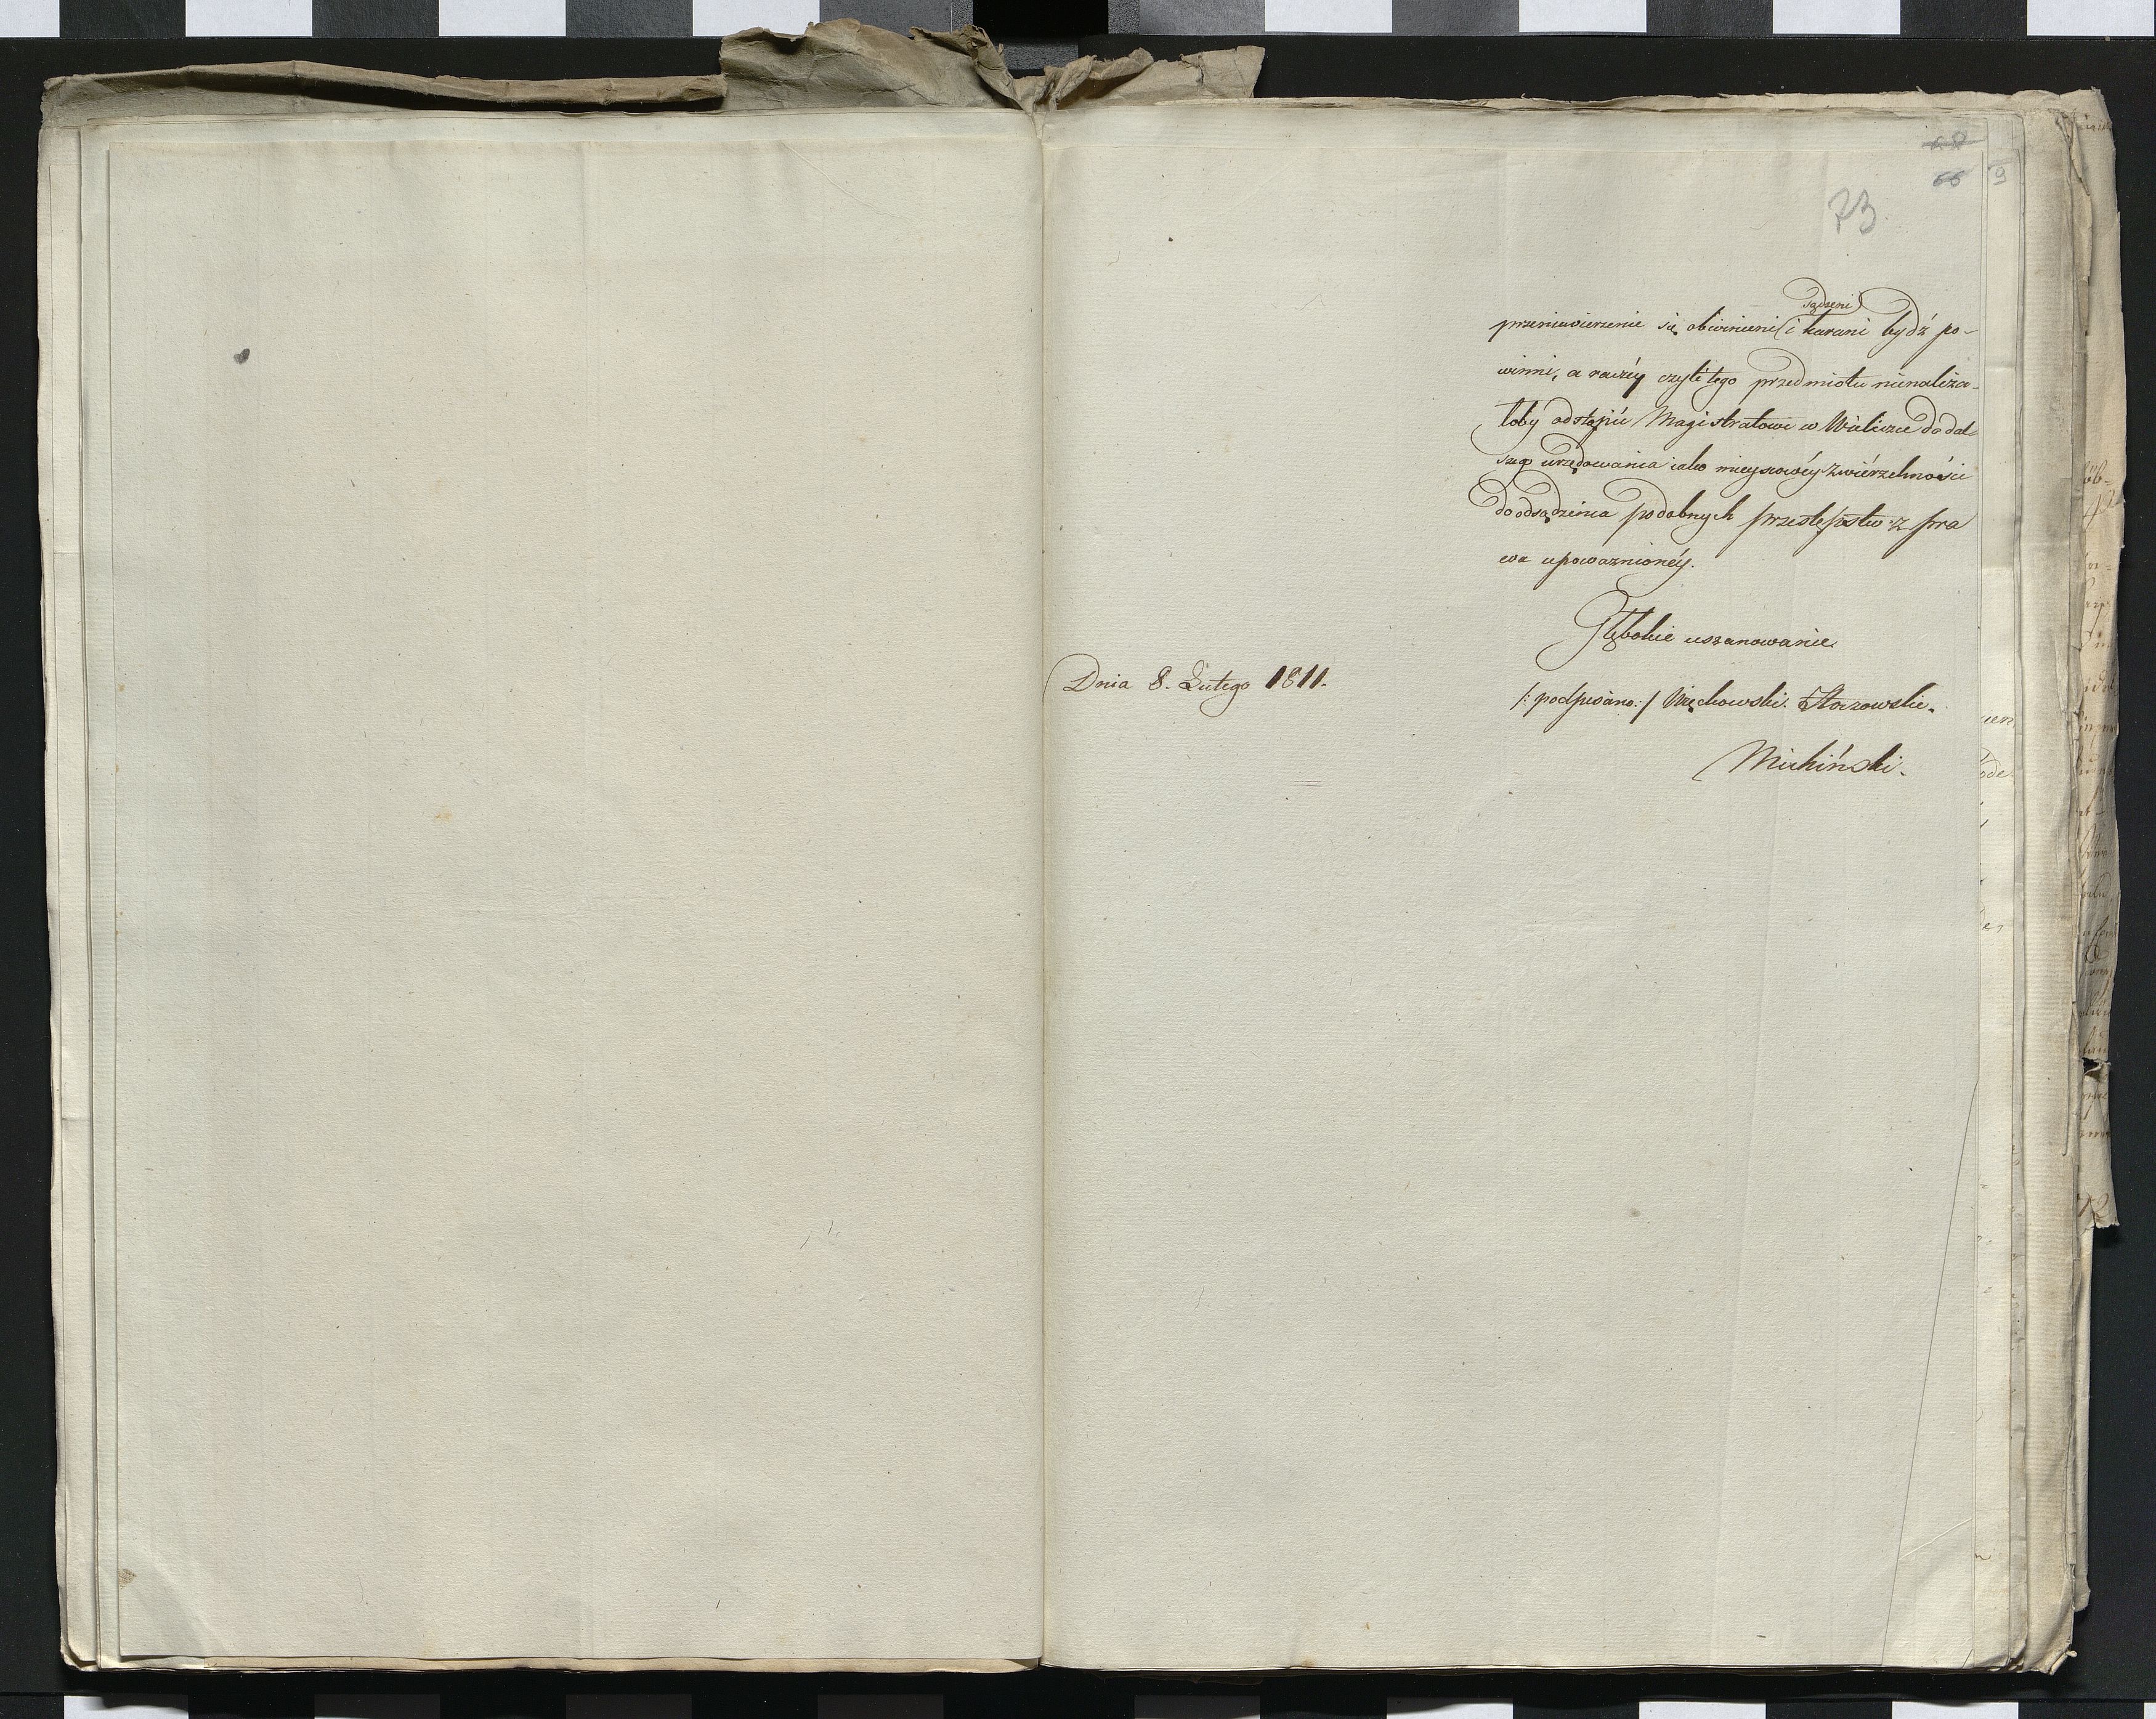 68
66
73
sądzeni
przeniewierzenie się obwinieni i karani bydź po-
winni, a raczéy czyli tego przedmiotu nienależa-
łoby odstąpić Magistratowi w Wieliczce do dal-
szego urzędowania iako mieyscowéy zwiérzchności
do odsądzenia podobnych przestępstw z pra
wa upoważnionéy.
Głębokie uszanowanie
Dnia 8. Lutego 1811.
/: podpisano :/ Węchowski.
Michiński.